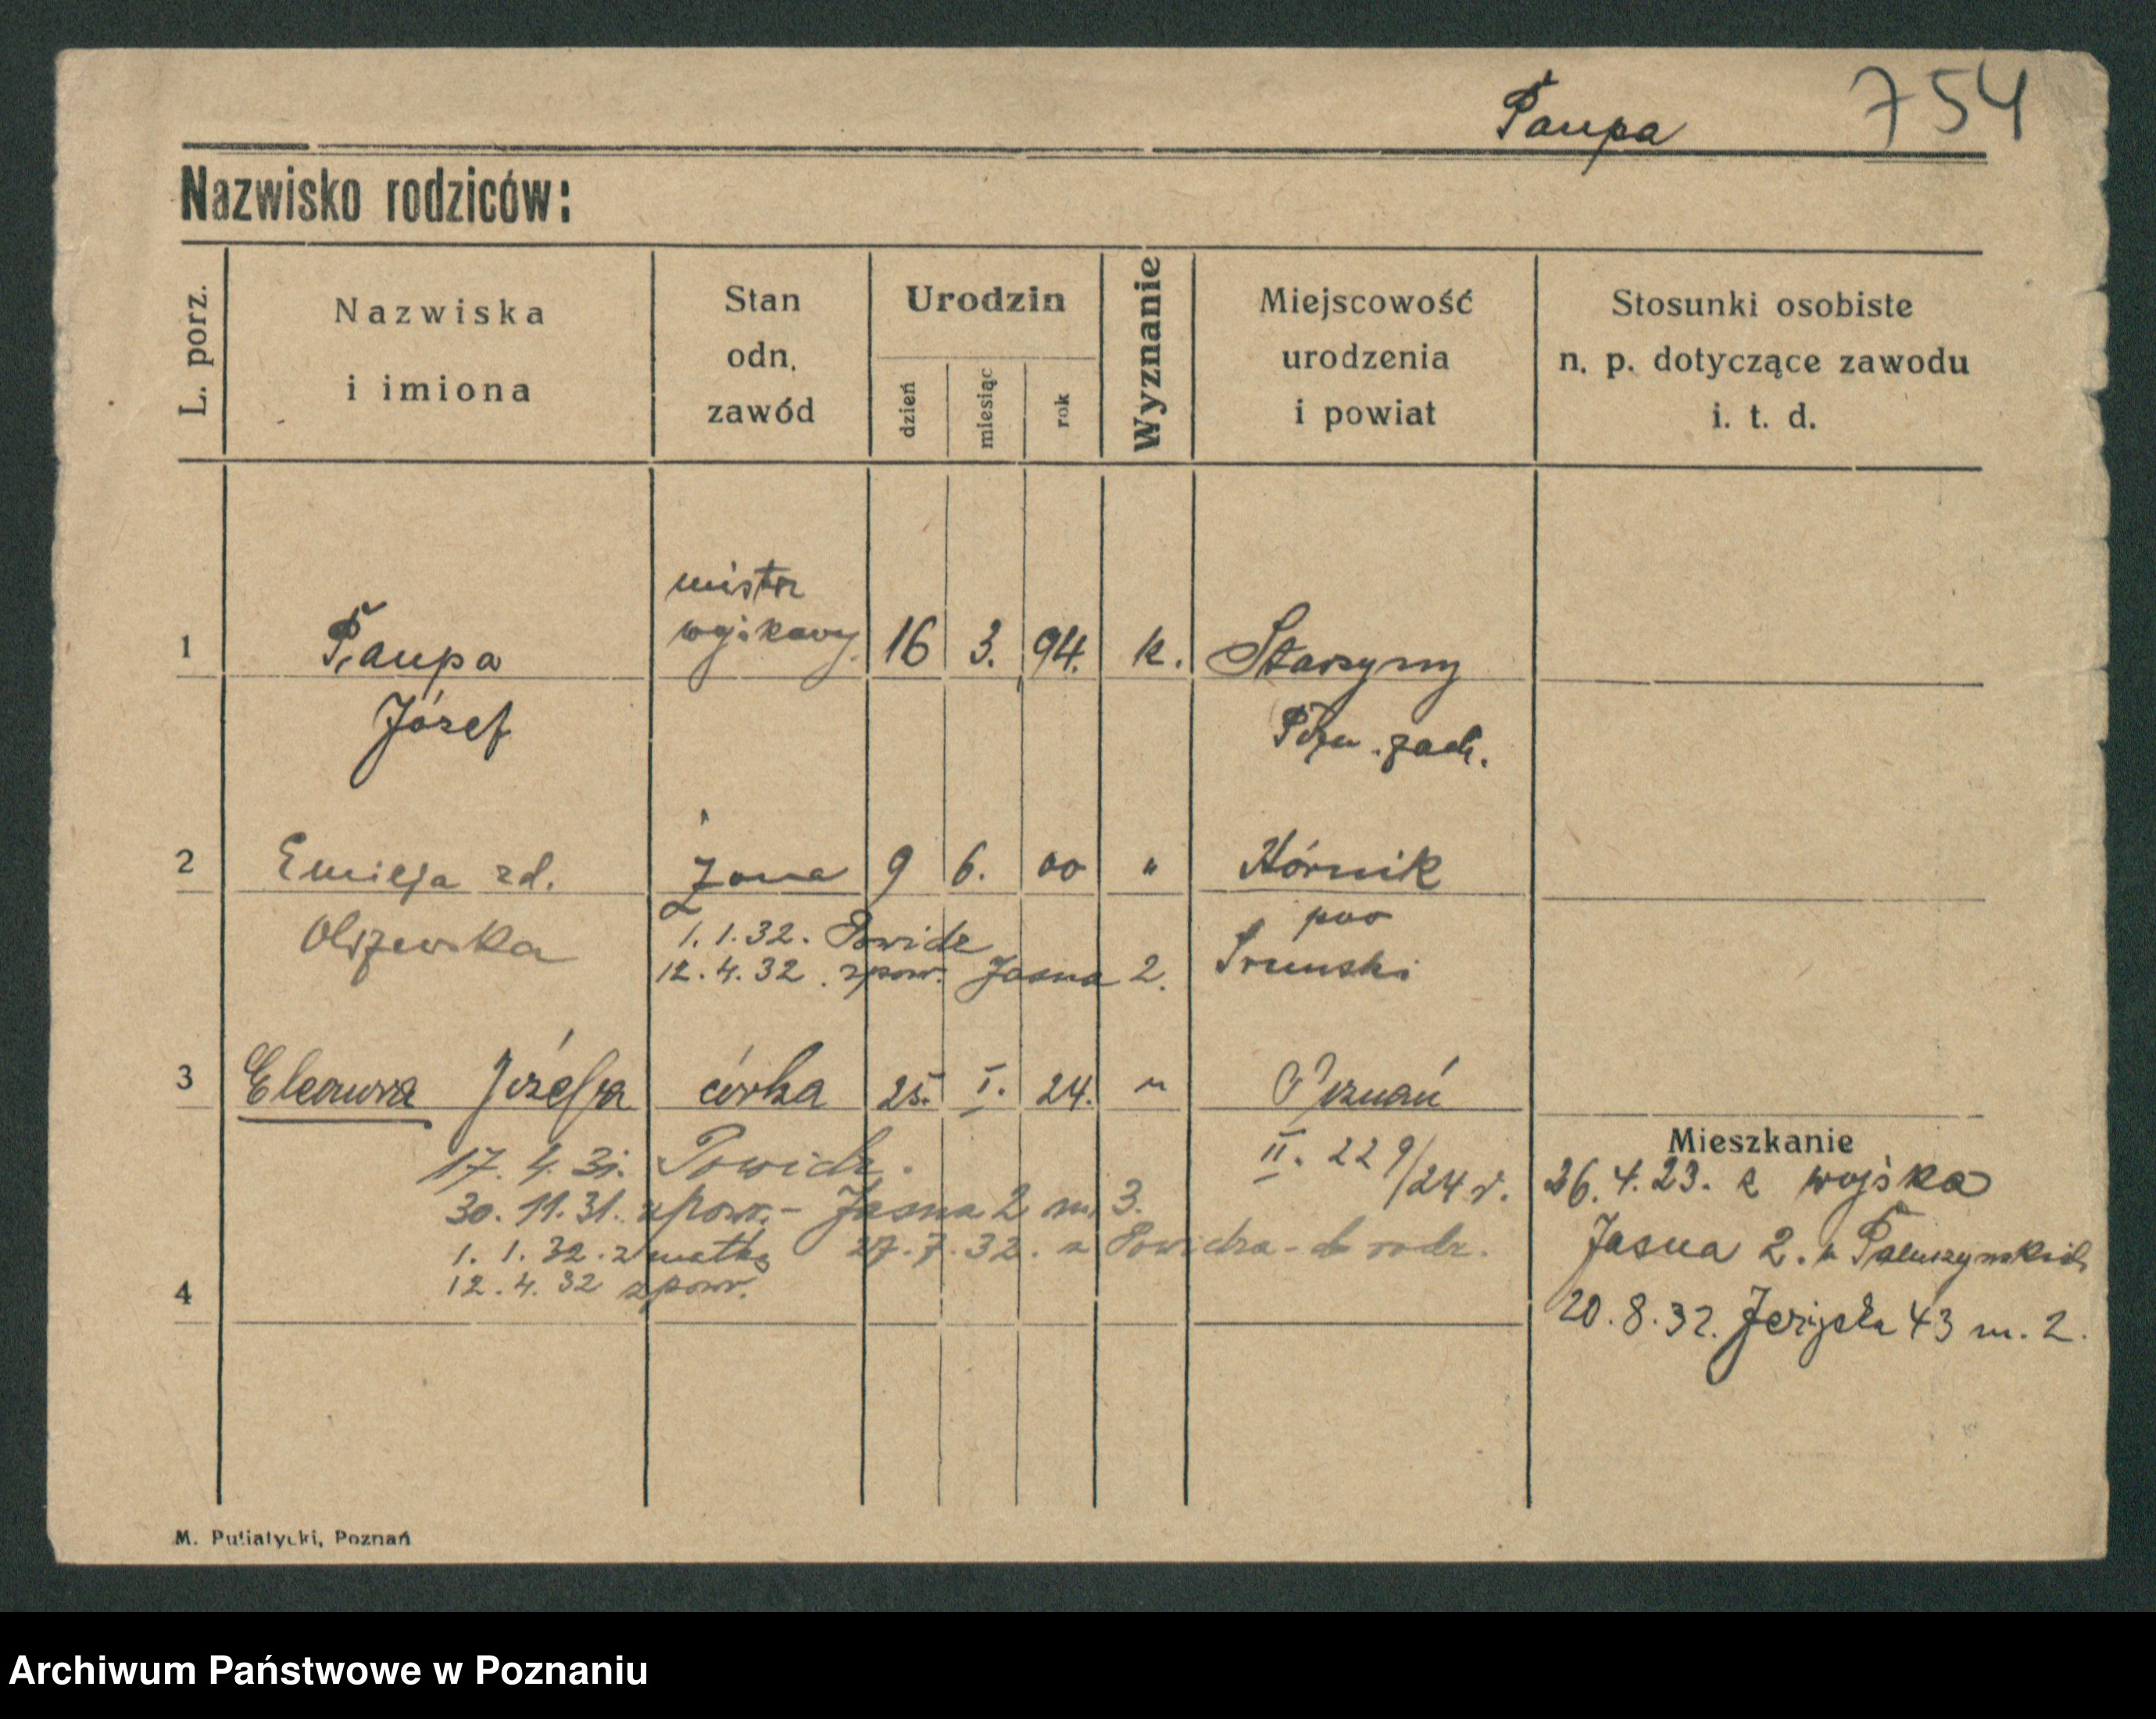 Paupa 754
Nazwisko rodziców:
L. porz. Nazwiska i imiona Stan odn. zawód Urodzin dzień miesiąc rok Wyznanie Miejscowość urodzenia i powiat Stosunki osobiste n. p. dotyczące zawodu i. t. d.
mistrz
1 Paupa wojskowy 16 3. 94. k.
Józef Pozn. zach.
2 Emilja zd. żona 9 6. 00 " Kórnik
Olszewska pow
1. 1. 32. Powidz Śremski
12. 4. 32. zpow. Jasna 2.
3 Eleonora Józefa córka 25. I. 24. " Poznań
II. 229/24 r.
Mieszkanie
17. 4. 31. Powidz. 26. 4. 23. z wojska
30. 11. 31. zpow. - Jasna 2 m 3.
1. 1. 32. z matką 27. 7. 32. z Powidza - do rodz. Jasna 2. u
12. 4. 32 zpow.
4 20. 8. 32. 43 m. 2.
M. Putiatycki, Poznań
Archiwum Państwowe w Poznaniu